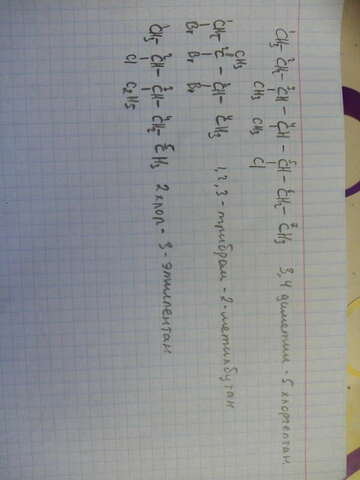 1 2 3 4 5 6 7
CH3 - CH2 - CH - CH - CH - CH2 - CH3 3,4 диметил - 5 хлоргептан
CH3 CH3 Cl
CH3
CH2 - C - CH - CH3 1,2,3 - трибром - 2 - метилбутан
Br Br Br
1 2 3 4 5
CH3 - CH - CH - CH2 - CH3 2 хлор - 3 - этилпентан
Cl C2H5